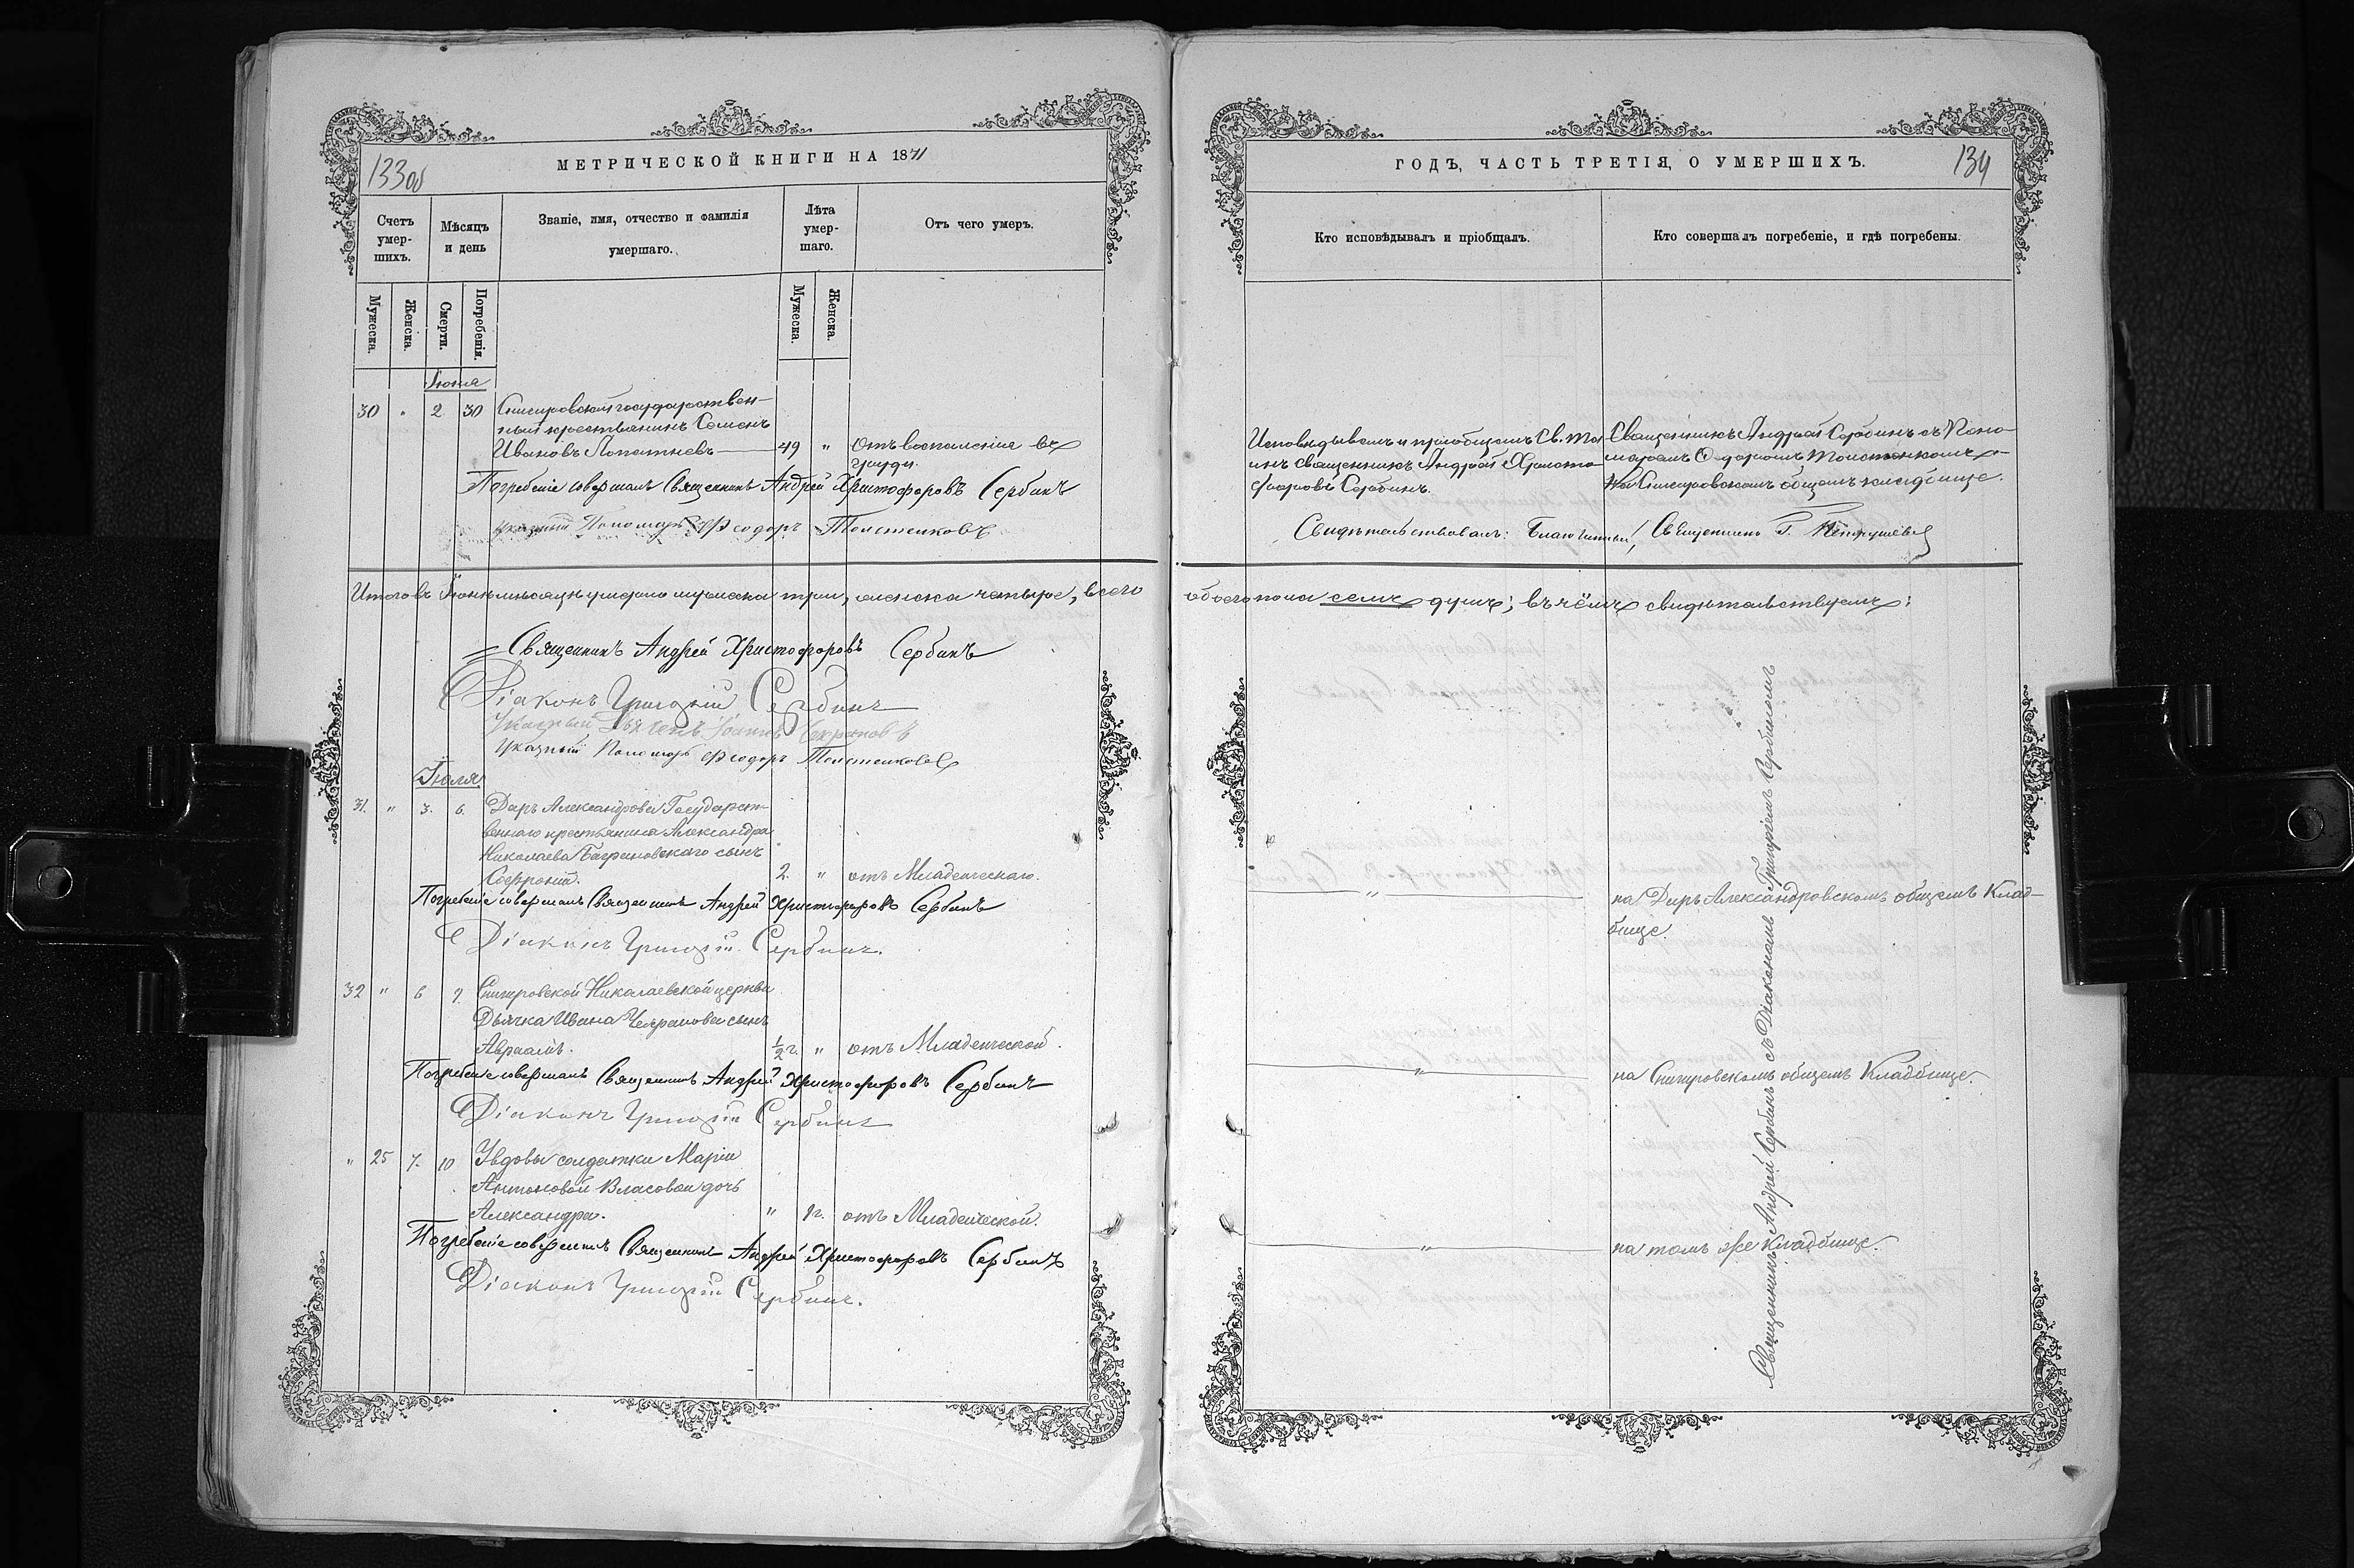 133 об
МЕТРИЧЕСКОЙ КНИГИ НА 1871
Счетъ умер-шихъ.
Мѣсяцъ и день
Званіе, имя, отчество и фамилія умершаго.
Лѣта умер-шаго.
Отъ чего умеръ.
Мужеска.
Женска.
Смерти.
Погребенія.
Мужеска.
Женска.
Іюня
30 " 2 30 Снигировскій государствен-
ный крестьянинъ Семенъ
Ивановъ Лопатневъ 49 " Отъ воспаленія въ
груди.
Погребеніе совершалъ Священникъ Андрей Христофоровъ Сербинъ
указный Пономарь Ѳеодоръ Толстенковъ
Итого въ Іюнѣ мѣсяцѣ умерло мужеска три, женска четыре, всего
Священникъ Андрей Христофоровъ Сербинъ
Діаконъ Григорій Сербинъ
Указный Дьячекъ Іоаннъ
указный Пономарь Ѳеодоръ Толстенковъ
Іюля
31. " 3. 6. Даръ Александрова Государст-
веннаго крестьянина Александра
Николаева Багриновскаго сынъ
Софроній. 2. " отъ Младенческаго.
Погребеніе совершалъ Священникъ Андрей Христофоровъ Сербинъ
Діаконъ Григорій Сербинъ.
32 " 6 7. Снигировской Николаевской церкви
Дьячка Ивана сынъ
Авраамъ. 1/2 г. " отъ Младенческой.
Погребеніе совершалъ Священникъ Андрей Христофоровъ Сербинъ
Діаконъ Григорій Сербинъ
" 25 7. 10 У вдовы солдатки Маріи
Антоновой Власовой дочь
Александра. " 1 г. отъ Младенческой.
Погребеніе совершалъ Священникъ Андрей Христофоровъ Сербинъ
Діаконъ Григорій Сербинъ.
ГОДЪ, ЧАСТЬ ТРЕТІЯ, О УМЕРШИХЪ.
134
Кто исповѣдывалъ и пріобщалъ.
Кто совершалъ погребеніе, и гдѣ погребены.
Исповѣдывалъ и пріобщалъ Св. Та-
инъ священникъ Андрей Христо-
форовъ Сербинъ.
Священникъ Андрей Сербинъ съ Поно-
маремъ Ѳедоромъ Толстенкомъ
На Снигировскомъ общемъ кладбище.
Свидѣтельствовалъ: Благочинный, Священникъ Г.
обоего пола семь душъ; въ чёмъ свидѣтельствуемъ:
" на Даръ Александровскомъ общемъ Клад-
бище.
" на Снигировскомъ общемъ Кладбище.
" на томъ же Кладбище.
Священникъ Андрей Сербинъ съ Діакономъ Григоріемъ Сербинымъ